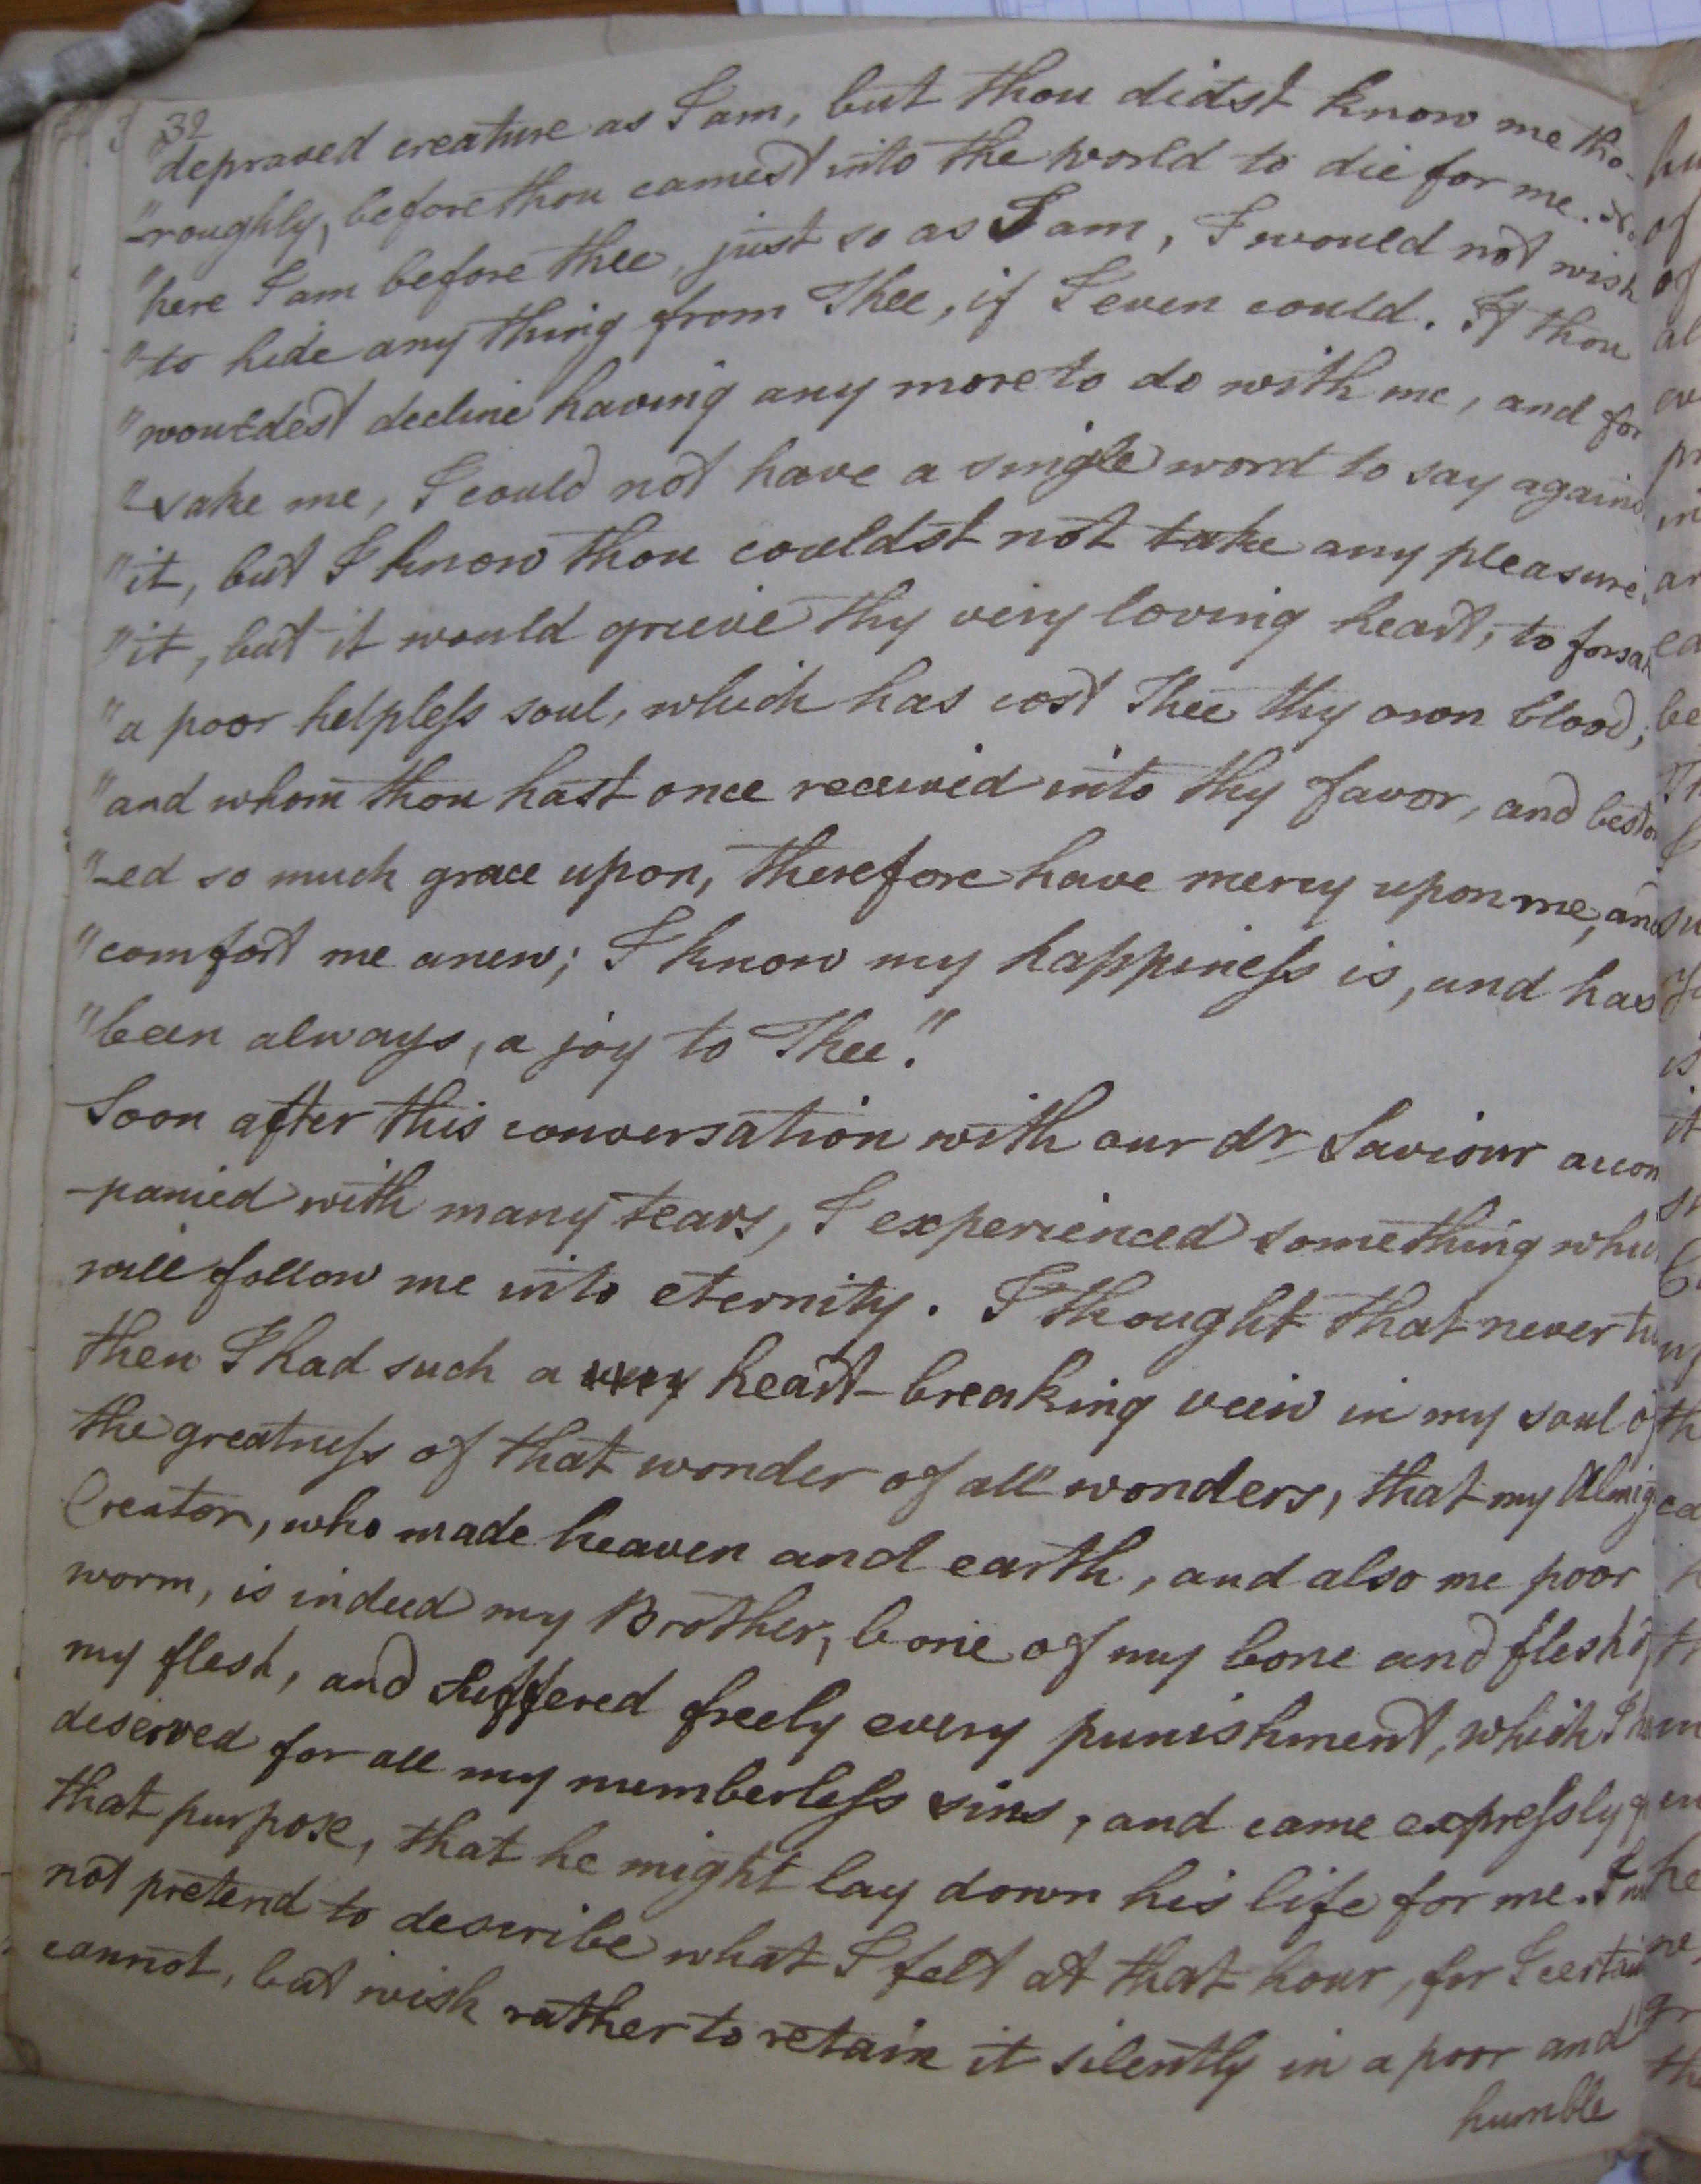 32
"depraved creature as I am, but thou didst know me tho-
"-roughly, before thou camest into the world to die for me.
"here I am before thee, just so as I am, I would not wish
"to hide any thing from Thee, if I even could. If thou
"wouldest decline having any more to do with me, and for
"-sake me, I could not have a single word to say agains
"it, but I know thou couldst not take any pleasure
"it, but it would grieve thy very loving heart, to forsak
"a poor helpless soul, which has cost Thee thy own blood;
"and whom thou hast once received into thy favor, and besto
"-ed so much grace upon, therefore have mercy upon me, and
"comfort me anew; I know my happiness is, and has
"been always, a joy to Thee."
Soon after this conversation with our dr Saviour accom
-panied with many tears, I experienced something whic
will follow me into eternity. I thought that never
then I had such a heart-breaking veiw in my soul of
the greatness of that wonder of all wonders, that my Almig
Creator, who made heaven and earth, and also me poor
worm, is indeed my Brother, bone of my bone and flesh of
my flesh, and suffered freely every punishment, which I
deserved for all my numberless sins, and came expressly
that purpose, that he might lay down his life for me. I
not pretend to describe what I felt at that hour, for I certain
cannot, but wish rather to retain it silently in a poor and
humble